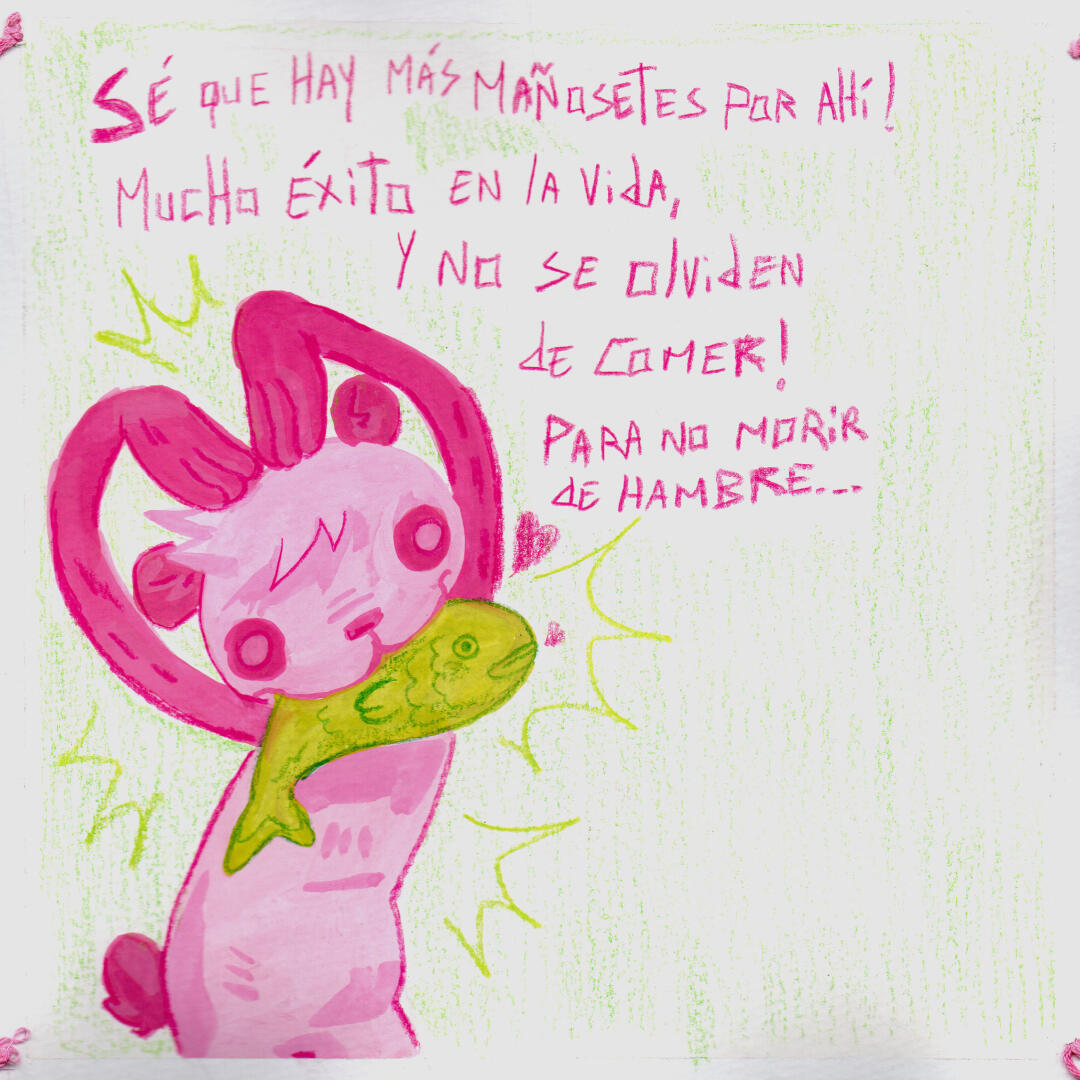 SÉ QUE HAY MÁS MAÑOSETES POR AHÍ!
MUCHO ÉXITO EN LA VIDA,
Y NO SE OLVIDEN
DE COMER!
PARA NO MORIR
DE HAMBRE...